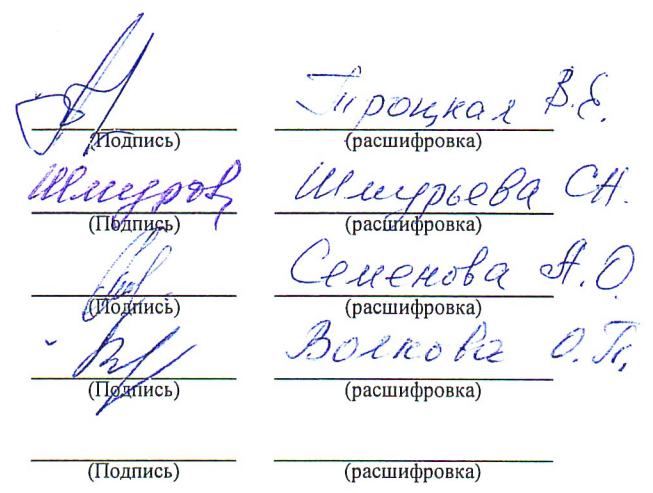 Троцкая В.Е.
(Подпись) (расшифровка)
Шмурьева С.Н.
(Подпись) (расшифровка)
Семенова А.О.
(Подпись) (расшифровка)
Волкова О.П.
(Подпись) (расшифровка)
(Подпись) (расшифровка)